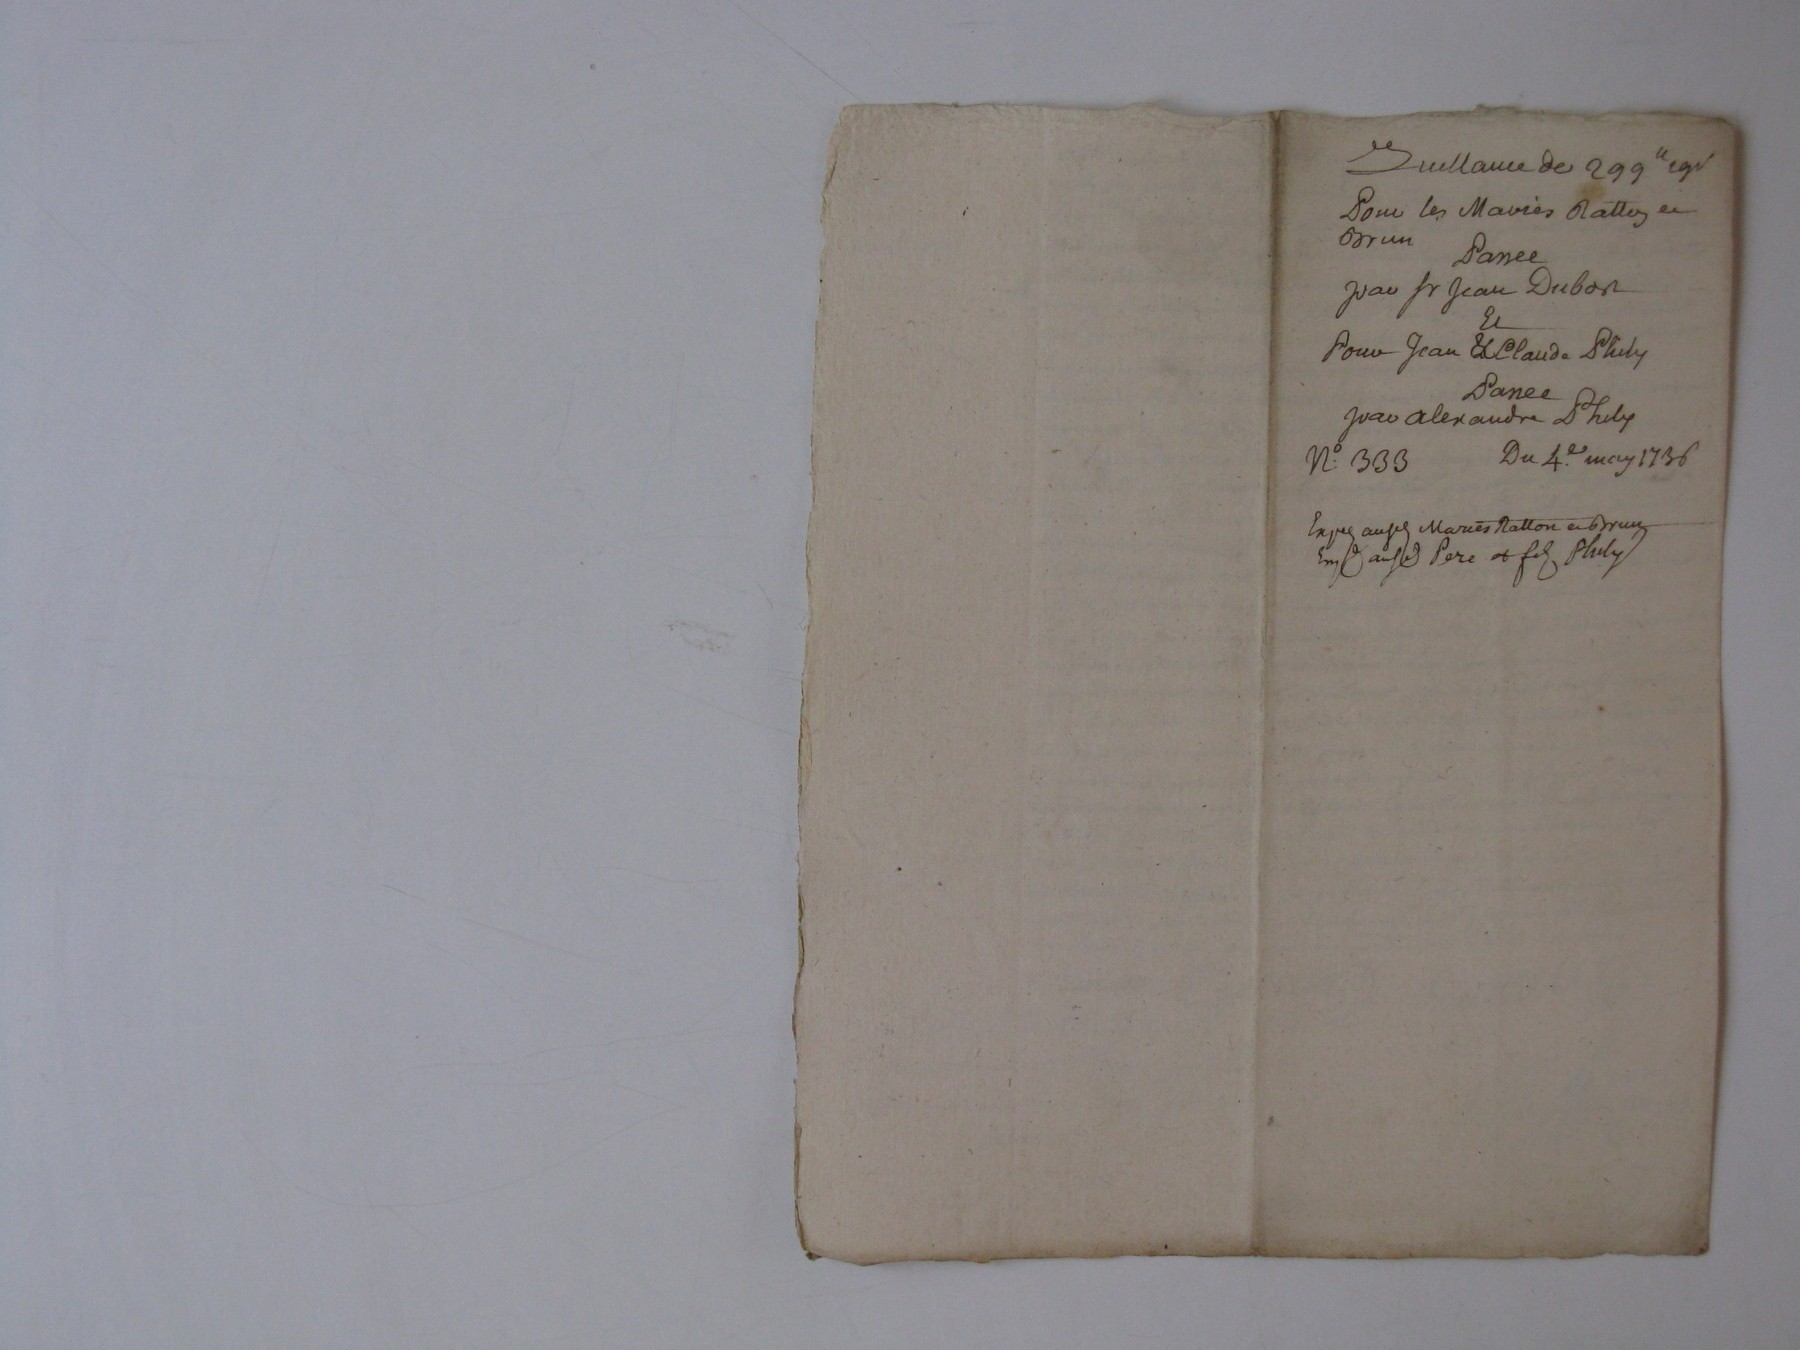 Quittance de 299 ₶ 19 s
Pour les Mariés Ratton et
Brun
Passee
par sr Jean Dubost
Et
Pour Jean & Claude Phily
Passee
par alexandre Phily
N.° 333 Du 4.e may 1736
Exped ausd Mariés Ratton et Brun
ausd Pere & fils Phily